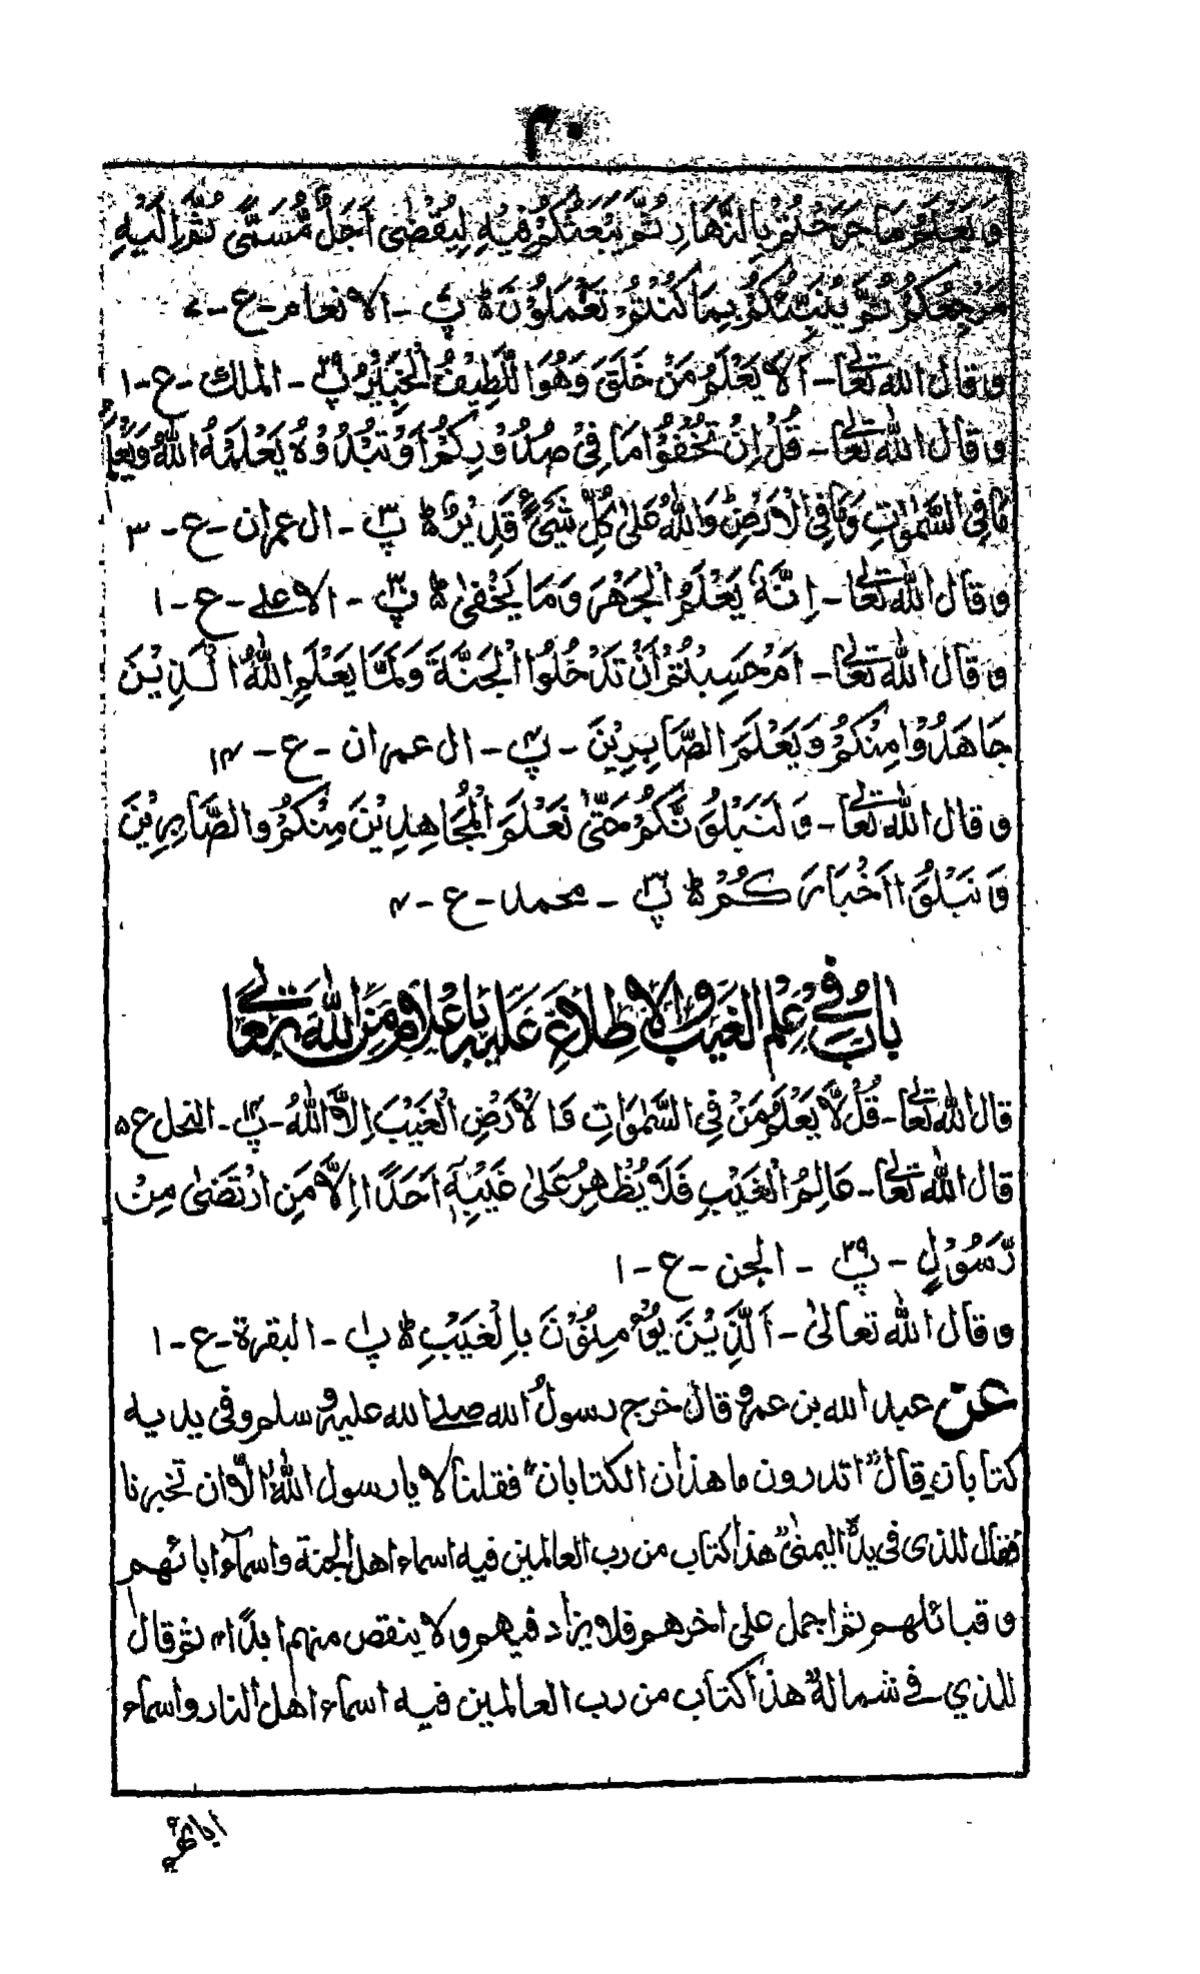 ٢٠
وَيَعْلَمُ مَا جَرَحْتُمْ بِالنَّهَارِ ثُمَّ يَبْعَثُكُمْ فِيْهِ لِيُقْضٰى اَجَلٌ مُّسَمًّى ثُمَّ اِلَيْهِ
مَرْجِعُكُمْ ثُمَّ يُنَبِّئُكُمْ بِمَا كُنْتُمْ تَعْمَلُوْنَ ۞ پ٧ - الانعام - ع - ٧
وقال الله تعالے - اَلَا يَعْلَمُ مَنْ خَلَقَ وَهُوَ اللَّطِيْفُ الْخَبِيْرُ پ٢٩ - الملك - ع - ١
وقال الله تعالے - قُلْ اِنْ تُخْفُوْا مَا فِىْ صُدُوْرِكُمْ اَوْ تُبْدُوْهُ يَعْلَمْهُ اللّٰهُ وَيَعْلَمُ
مَا فِى السَّمٰوٰتِ وَمَا فِى الْاَرْضِ ؕ وَاللّٰهُ عَلٰى كُلِّ شَيْءٍ قَدِيْرٌ ۞ پ٣ - ال عمران - ع - ٣
وقال الله تعالے - اِنَّهٗ يَعْلَمُ الْجَهْرَ وَمَا يَخْفٰى ۞ پ٣٠ - الاعلے - ع - ١
وقال الله تعالے - اَمْ حَسِبْتُمْ اَنْ تَدْخُلُوا الْجَنَّةَ وَلَمَّا يَعْلَمِ اللّٰهُ الَّذِيْنَ
جَاهَدُوْا مِنْكُمْ وَيَعْلَمَ الصَّابِرِيْنَ - پ٤ - ال عمران - ع - ١٤
وقال الله تعالے - وَلَنَبْلُوَنَّكُمْ حَتّٰى نَعْلَمَ الْمُجَاهِدِيْنَ مِنْكُمْ والصَّابِرِيْنَ
وَنَبْلُوَا۟ اَخْبَارَكُمْ ۞ پ - محمد - ع - ٤
بابٌ فِي عِلْمِ الغَيبِ والاطلاعِ عَلَيهِ بِاعلامٍ مِنَ اللهِ تَعَالے
قال الله تعالے - قُلْ لَّا يَعْلَمُ مَنْ فِى السَّمٰوَاتِ وَالْاَرْضِ الْغَيْبَ اِلَّا اللّٰهُ - پ - النحل ع ٥
قال الله تعالے - عَالِمُ الْغَيْبِ فَلَا يُظْهِرُ عَلٰى غَيْبِهٖ اَحَدًا اِلَّا مَنِ ارْتَضٰى مِنْ
رَّسُوْلٍ - پ٢٩ - الجن - ع - ١
وقال الله تعالىٰ - اَلَّذِيْنَ يُؤْمِنُوْنَ بِالْغَيْبِ ۞ پ١ - البقرة - ع - ١
عن عبد الله بن عمرو قال خرج رسول الله صلے الله عليه وسلم وفى يديه
كتابان قال "اتدرون ما هذان الكتابان" فقلنا لا يا رسول الله الّا ان تخبرنا
فقال للذى فى يده اليمنىٰ "هذا كتاب من رب العالمين فيه اسماء اهل الجنة واسماء ابائهم
وقبائلهم ثم اجمل على اخرهم فلا يزاد فيهم ولا ينقص منهم ابدًا" ثم قال
للذي فے شماله "هذا كتاب من رب العالمين فيه اسماء اهل النار واسماء
ابائهم